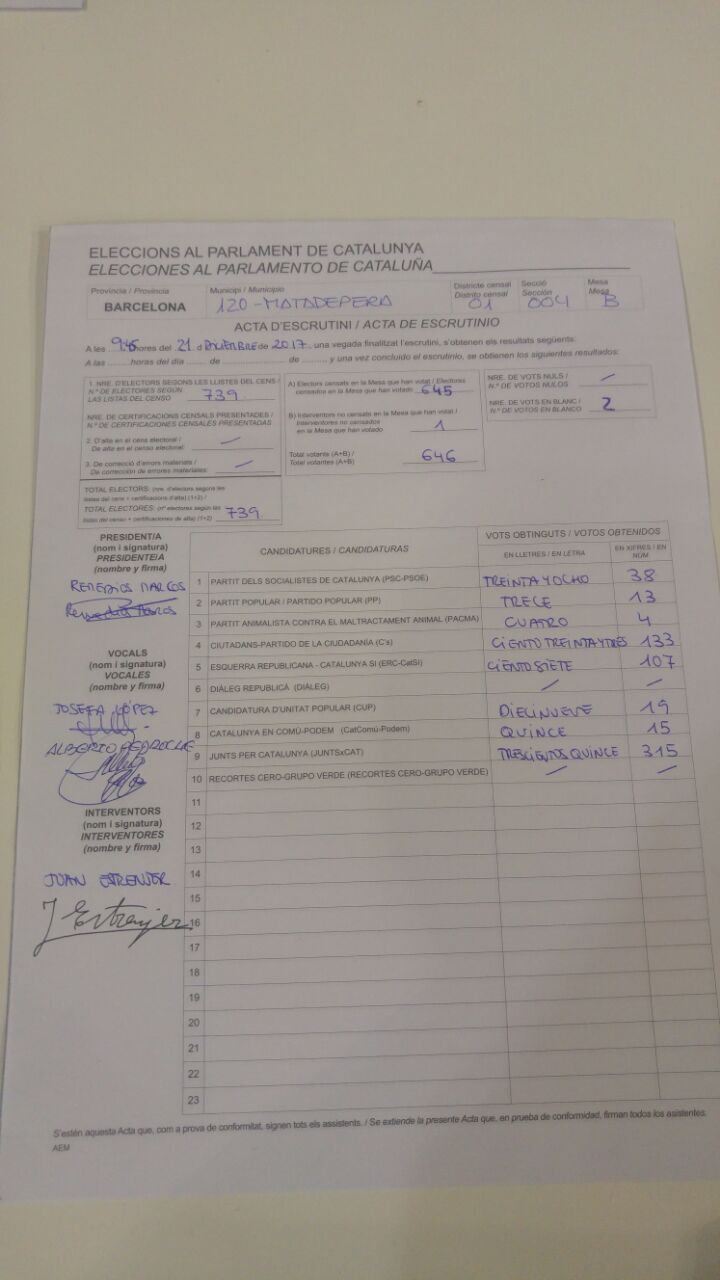 ELECCIONS AL PARLAMENT DE CATALUNYA
ELECCIONES AL PARLAMENTO DE CATALUÑA
Província / Provincia Municipi / Municipio Districte censal Secció Mesa
Distrito censal Sección Mesa
BARCELONA 120-MATADEPERA 01 004 B
ACTA D'ESCRUTINI / ACTA DE ESCRUTINIO
A les 9:45 hores del 21 d DICIEMBRE de 2017, una vegada finalitzat l'escrutini, s'obtenen els resultats següents:
A las ........horas del día ...... de .................. de ........ y una vez concluido el escrutinio, se obtienen los siguientes resultados:
1. NRE. D'ELECTORS SEGONS LES LLISTES DEL CENS /
N.º DE ELECTORES SEGÚN
LAS LISTAS DEL CENSO 739
NRE. DE CERTIFICACIONS CENSALS PRESENTADES /
N.º DE CERTIFICACIONES CENSALES PRESENTADAS
2. D'alta en el cens electoral /
De alta en el censo electoral: —
3. De correcció d'errors materials /
De corrección de errores materiales: —
TOTAL ELECTORS: (nre. d'electors segons les
llistes del cens + certificacions d'alta) (1+2) /
TOTAL ELECTORES: (nº electores según las
listas del censo + certificaciones de alta) (1+2) 739
A) Electors censats en la Mesa que han votat / Electores
censados en la Mesa que han votado 645
B) Interventors no censats en la Mesa que han votat /
Interventores no censados
en la Mesa que han votado 1
Total votants (A+B) /
Total votantes (A+B) 646
NRE. DE VOTS NULS /
N.º DE VOTOS NULOS —
NRE. DE VOTS EN BLANC /
N.º DE VOTOS EN BLANCO 2
PRESIDENT/A
(nom i signatura)
PRESIDENTE/A
(nombre y firma)
REMEDIOS MARCOS
Remedios Marcos
VOCALS
(nom i signatura)
VOCALES
(nombre y firma)
JOSEFA LÓPEZ
ALBERTO PEDROCHE
INTERVENTORS
(nom i signatura)
INTERVENTORES
(nombre y firma)
JUAN
J Estranjer
CANDIDATURES / CANDIDATURAS
VOTS OBTINGUTS / VOTOS OBTENIDOS
EN LLETRES / EN LETRA EN XIFRES / EN NÚM
1 PARTIT DELS SOCIALISTES DE CATALUNYA (PSC-PSOE) TREINTA YOCHO 38
2 PARTIT POPULAR / PARTIDO POPULAR (PP) TRECE 13
3 PARTIT ANIMALISTA CONTRA EL MALTRACTAMENT ANIMAL (PACMA) CUATRO 4
4 CIUTADANS-PARTIDO DE LA CIUDADANÍA (C's) CIENTO TREINTAYTRES 133
5 ESQUERRA REPUBLICANA - CATALUNYA SÍ (ERC-CatSí) CIENTO SIETE 107
6 DIÀLEG REPUBLICÀ (DIÀLEG) — —
7 CANDIDATURA D'UNITAT POPULAR (CUP) DIECINUEVE 19
8 CATALUNYA EN COMÚ-PODEM (CatComú-Podem) QUINCE 15
9 JUNTS PER CATALUNYA (JUNTSxCAT) TRESCIENTOS QUINCE 315
10 RECORTES CERO-GRUPO VERDE (RECORTES CERO-GRUPO VERDE) — —
11
12
13
14
15
16
17
18
19
20
21
22
23
S'estén aquesta Acta que, com a prova de conformitat, signen tots els assistents. / Se extiende la presente Acta que, en prueba de conformidad, firman todos los asistentes.
AEM